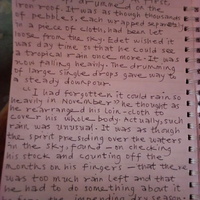 drummed on the
iron roof. It was as though thousands
of pebbles, each wrapped separately
in a piece of cloth, had been let
loose from the sky. Edet wished it
was day time so that he could see
a tropical rain once more. It was
now falling heavily. The drumming
of large single drops gave way to
a steady downpour.
"I had forgotten it could rain so
heavily in November" he thought as
he rearranged his loin-cloth to
cover his whole body. Actually, such
rain was unusual. It was as though
the spirit presiding over the waters
in the sky, found - on checking
his stock and counting off the
months on his fingers - that there
was too much rain left and that
he had to do something about it
the impending dry season.